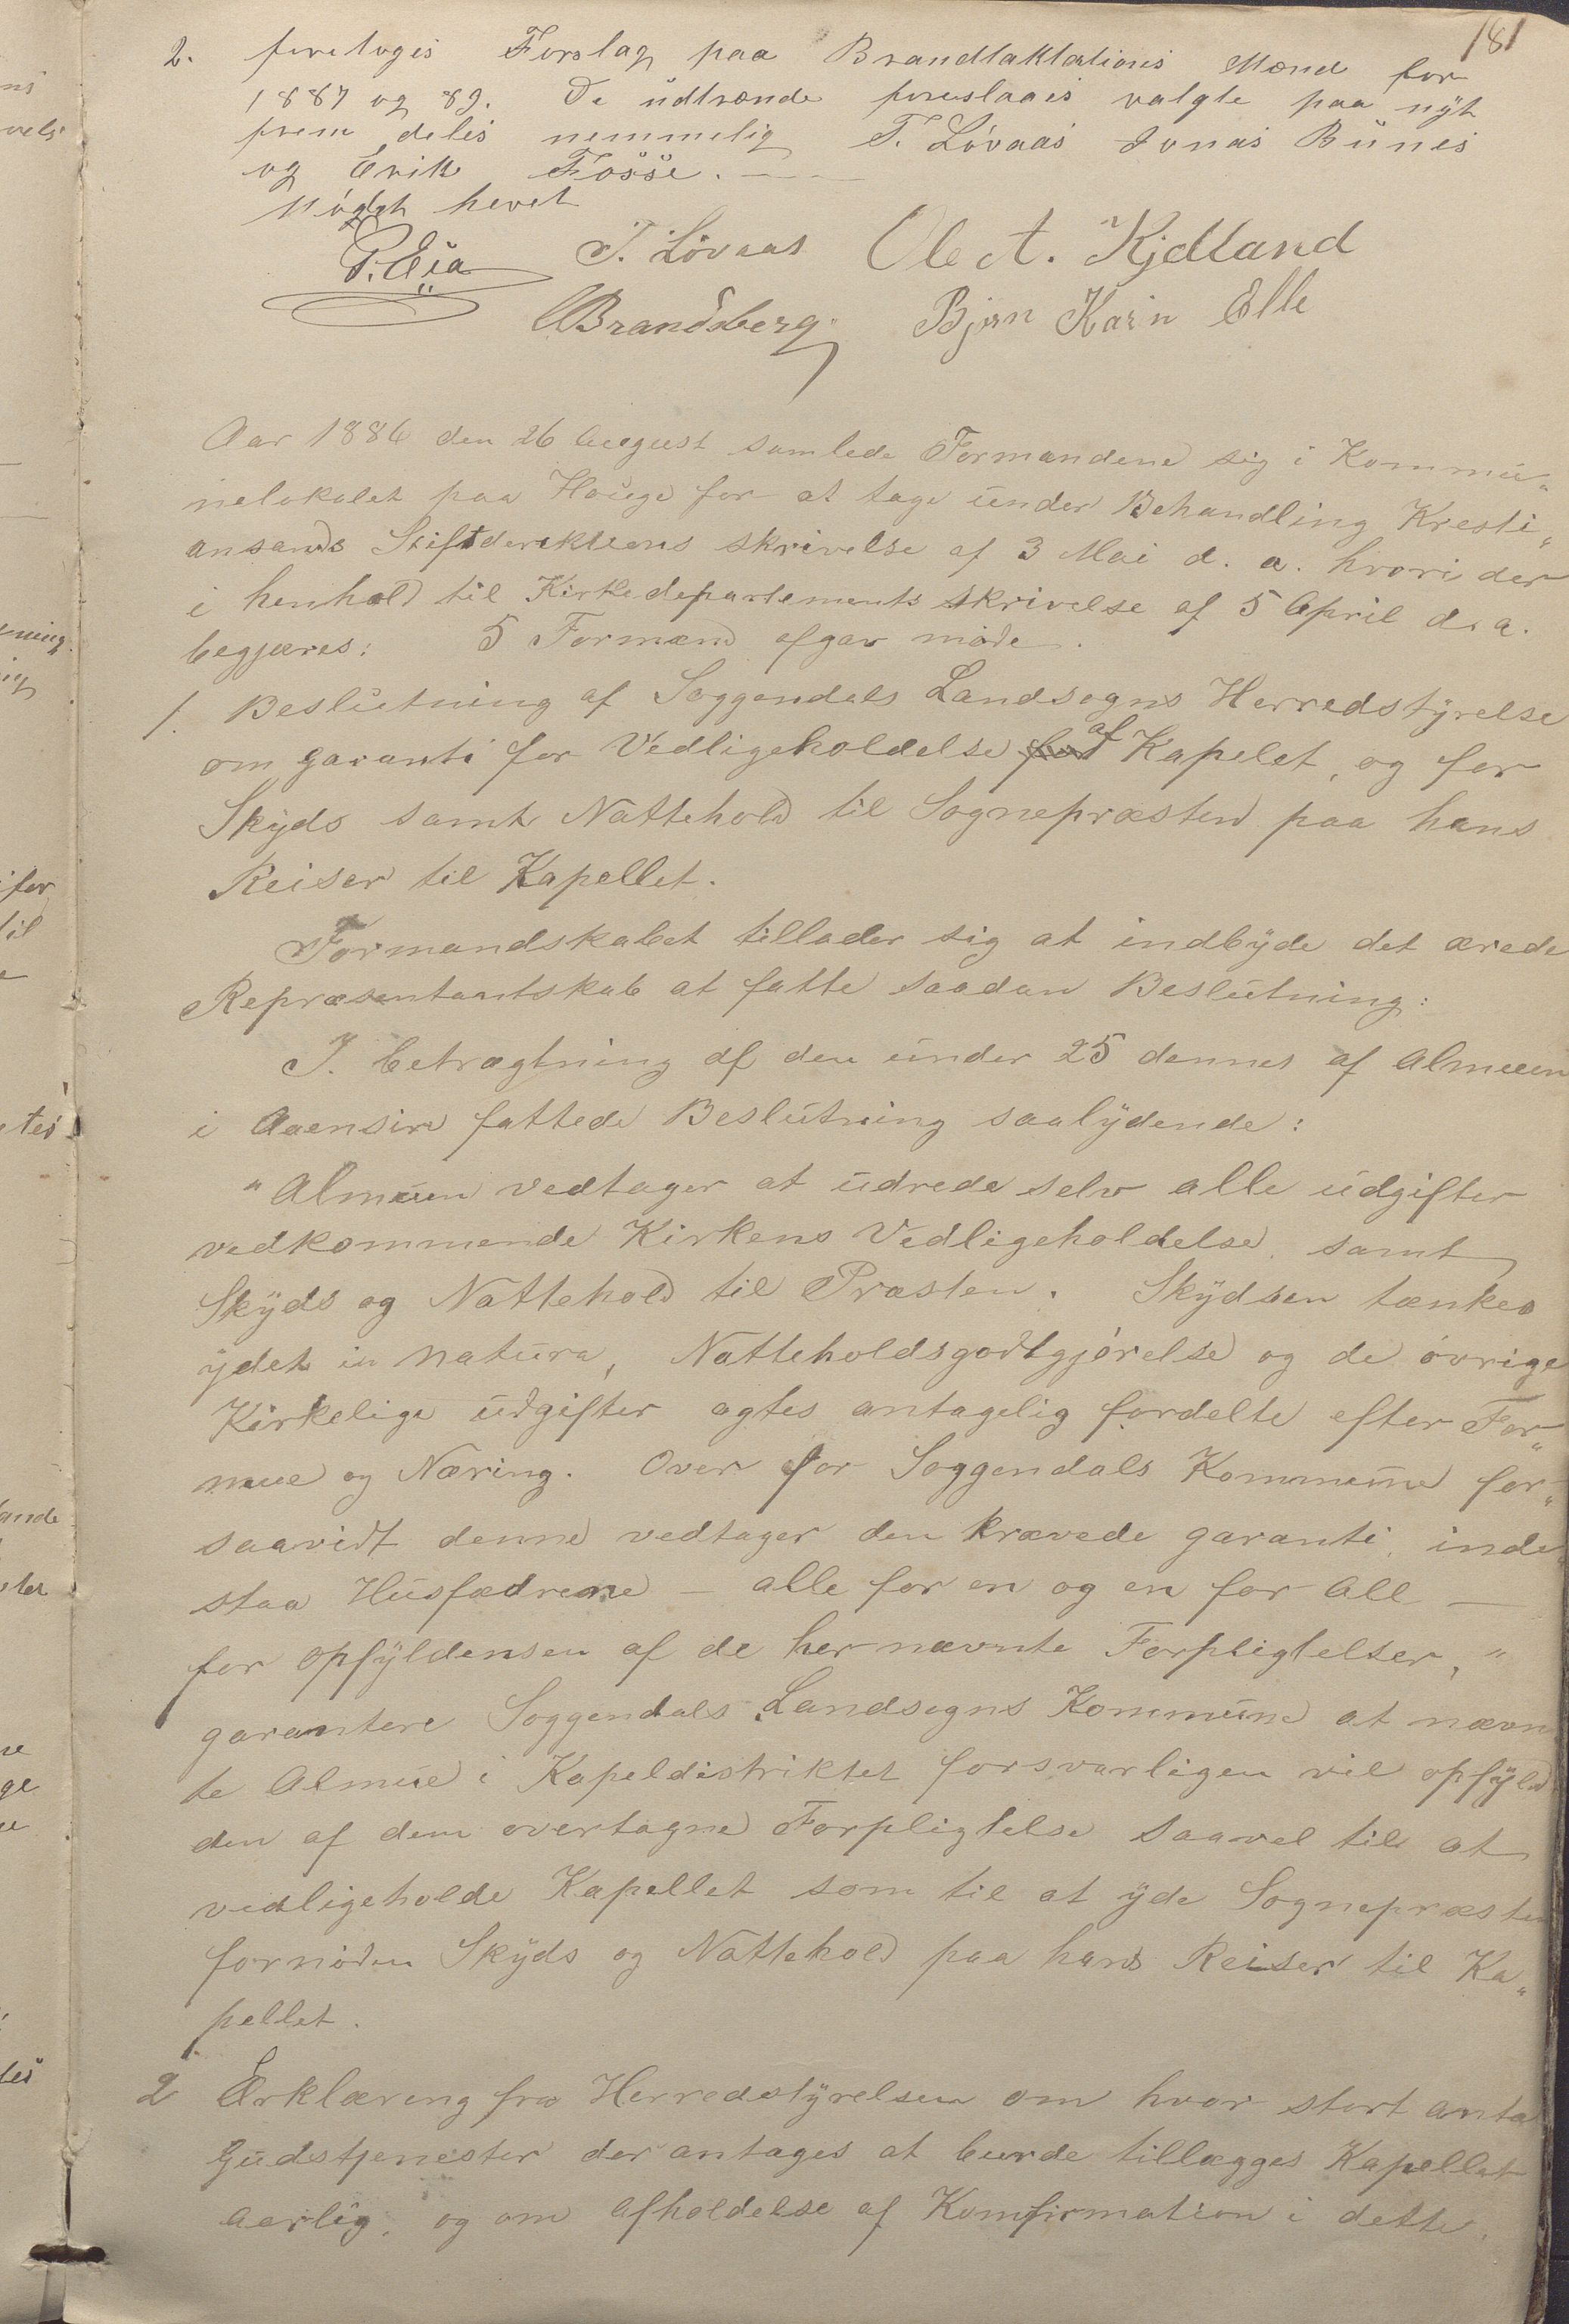 181
2. foretoges Forslag paa Brandtaktations Mænd for
1887 og 89. De udtrænde foreslaaes valgte paa nyt
frem deles nemmelig T. Lóvaas Jonas Bünes
og Erik Fosse.
Mødet hevet
P. Eia T. Lövaas Ole A. Kjelland
Brandsberg Bjørn Karin Elle
Aar 1886 den 26 August samlede Formandene sig i Kommü„
nelokalet paa Haüge for at tage ünder Behandling Kresti„
ansands Stiftderektions skrivelse af 3 Mai d. a. hvori der
i henhold til Kirkedepartements skrivelse af 5 April d. a.
begjæres: 5 Formænd afgav møde.
1. Beslütning af Soggendals Landsogns Herredstÿrelse
om garanti for Vedligeholdelse af Kapelet, og for
Skÿds samt Nattehold til Sognepræsten paa hans
Reiser til Kapellet.
Formandskabet tillader sig at indbÿde det ærede
Repræsentantskab at fatte saadan Beslütning:
I. betragtning af den ünder 25 dennes af Almuen
i Aaensire fattede Beslütning saalÿdende:
"Almüen vedtager at üdrede selv alle üdgifter
vedkommende Kirkens Vedligeholdelse, samt
Skÿds og Nattehold til Præsten. Skÿdsen tænkes
ÿdet in natüra, Natteholdsgodtgjórelse og de óvrige
Kirkelige üdgifter agtes antagelig fordelte efter For„
mue og Næring. Over for Soggendals Kommüne for„
saavidt denne vedtager den krævede garanti, inde„
staa Hüsfædrene — alle for en og en for all —
for opfÿldensen af de her nævnte Forpligtelser,"
garantere Soggendals Landsogns Kommüne at nævn
te Almüe i Kapeldistriktet forsvarligen vil opfÿld
den af dem overtagne Forpligtelse saavel til at
vedligeholde Kapellet som til at ÿde Sognepræsten
fornöden Skÿds og Nattehold paa hans Reiser til Ka„
pellet.
2 Erklæring fra Herredstÿrelsen om hvor stort anta
Güdstjenester der antages at burde tillægges Kapellet
aarlig, og om afholdelse af Komfirmation i dette.